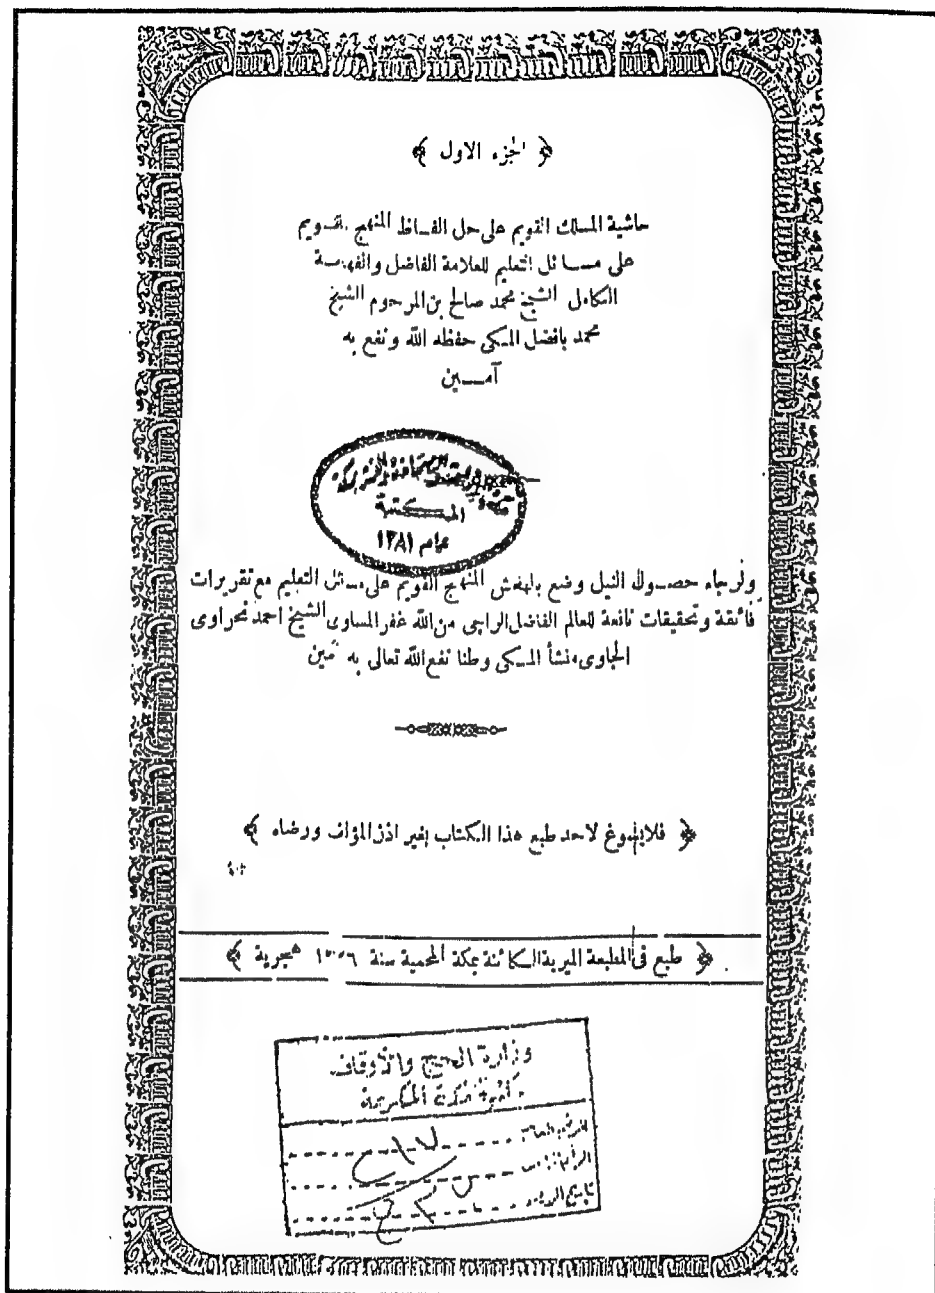 ﴿ الجزء الاول ﴾
حاشية المسلك القويم على حل الفـاظ المنهج القـويم
على مسـائل التعليم للعلامة الفاضل والفهامـة
الكامل الشيخ محمد صالح بن المرحوم الشيخ
محمد بافضل المكى حفظه الله ونفع به
آمـين
المكتبة
عام ١٣٨١
ولرجاء حصـول النيل وضع بالهامش المنهج القويم على مسـائل التعليم مع تقريرات
فائقة وتحقيقات نافعة للعالم الفاضل الراجى من الله غفر المساوى الشيخ احمد نحراوى
الجاوى منشأ المكى وطنا نفع الله تعالى به آمين
﴿ فلايسوغ لاحد طبع هذا الكتاب بغير اذن المؤلف ورضاه ﴾
﴿ طبع فى المطبعة الميرية الكائنة بمكة المحمية سنة هجرية ﴾
وزارة الحج والأوقاف
مكتبة مكة المكرمة
الرقم العام
تاريخ الورود